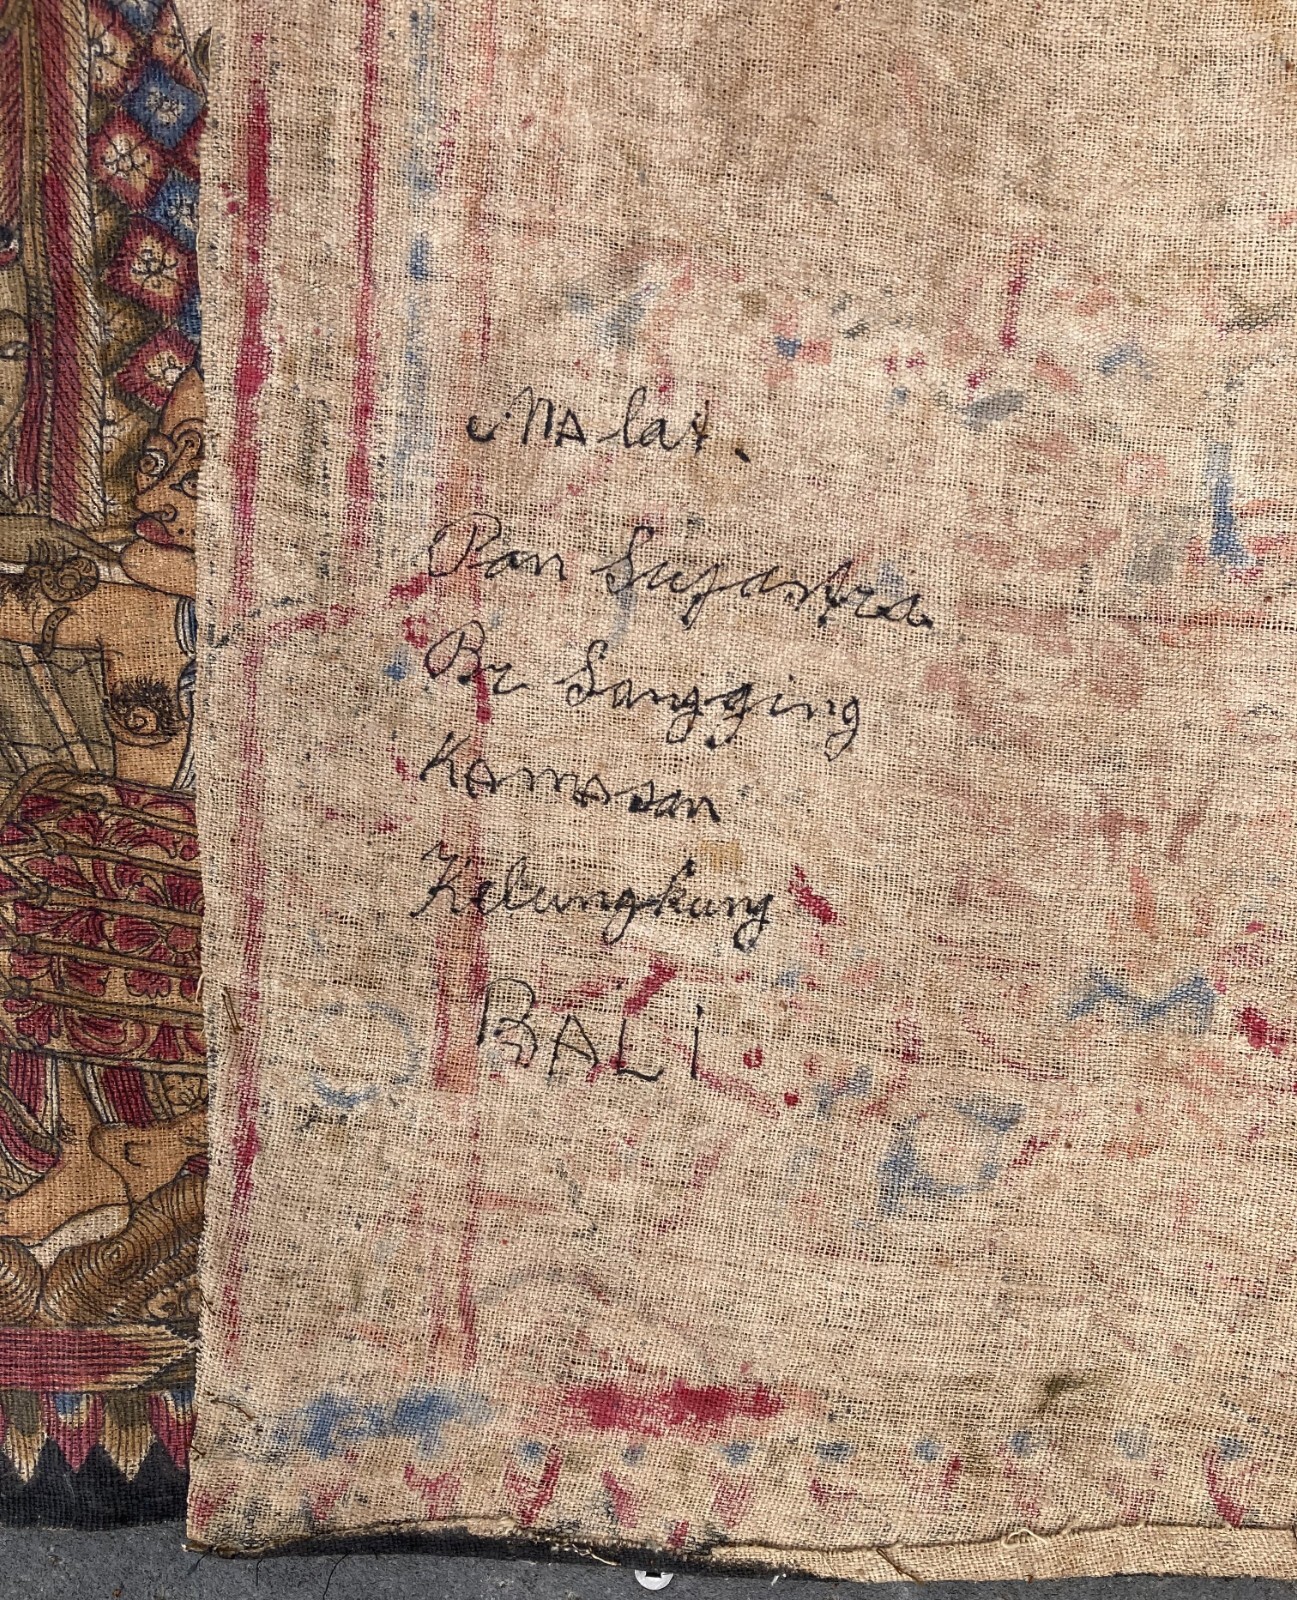 Malat.
Pan Sujastra
Br Sangging
Kamasan
Kelungkung
BALI